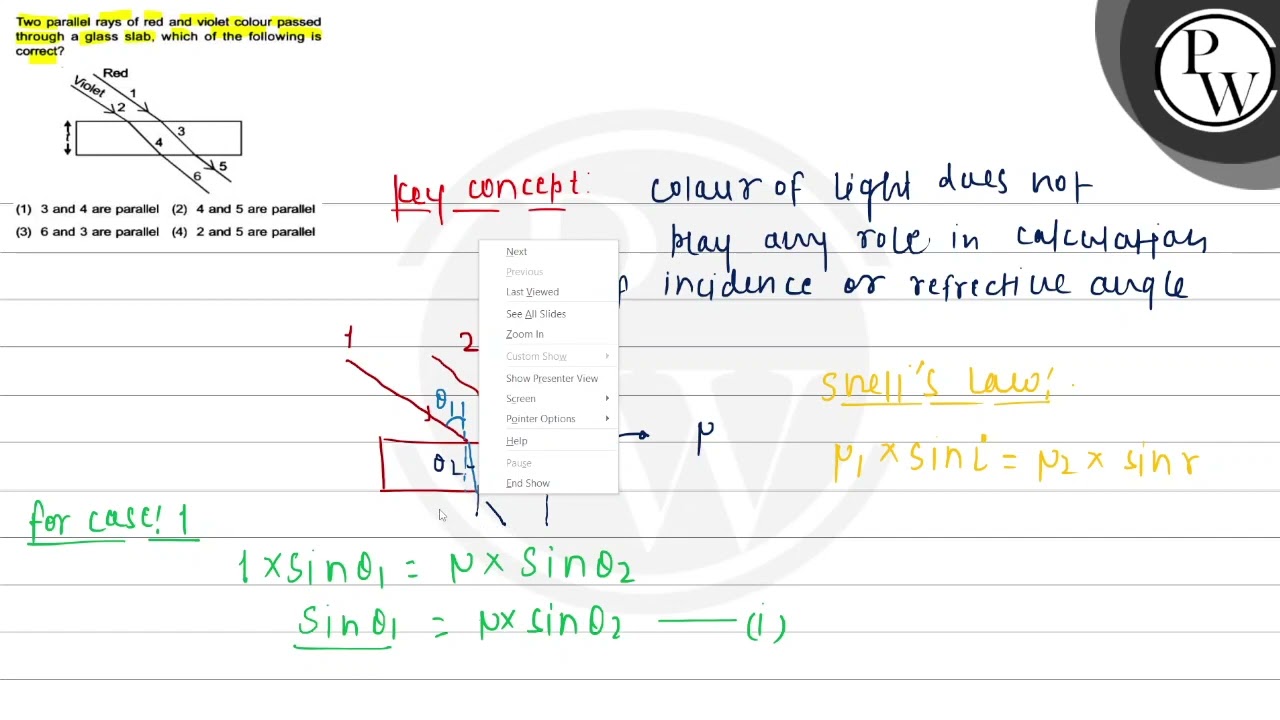 Two parallel rays of red and violet colour passed
through a glass slab, which of the following is
correct?
Red
Violet
1
2
3
4
5
6
t
(1) 3 and 4 are parallel (2) 4 and 5 are parallel
(3) 6 and 3 are parallel (4) 2 and 5 are parallel
P
W
key concept: colour of light does not
play any role in calculation
incidence or refrective angle
Next
Previous
Last Viewed
See All Slides
Zoom In
Custom Show
Show Presenter View
Screen
Pointer Options
Help
Pause
End Show
1
2
θ1
θ2
μ
Snell's Law:
μ1 × sin i = μ2 × sin r
for case: 1
1 × sin θ1 = μ × sin θ2
sin θ1 = μ × sin θ2 —— (i)